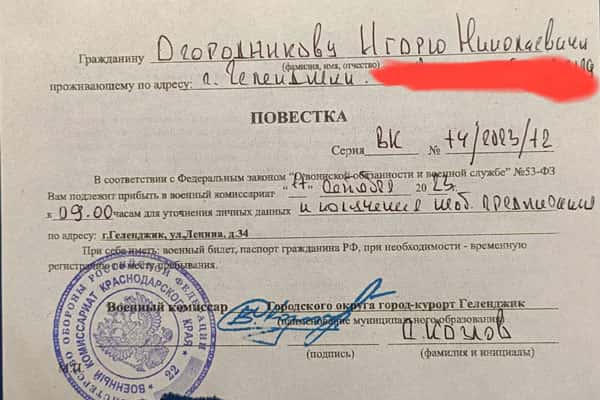 Гражданину Огородникову Игорю Николаевичу
(фамилия, имя, отчество)
проживающему по адресу: г. Геленджик
ПОВЕСТКА
Серия ВК № 74/2023/72
В соответствии с Федеральным законом "О воинской обязанности и военной службе" №53-ФЗ
Вам подлежит прибыть в военный комиссариат октября 2023.
к 09.00 часам для уточнения личных данных и получения моб. предписания
по адресу: г.Геленджик, ул,Ленина, д.34
При себе иметь: военный билет, паспорт гражданина РФ, при необходимости - временную
регистрацию по месту пребывания.
Военный комиссар Городского округа город-курорт Геленджик
(наименование муниципального образования)
А. Козлов
(подпись) (фамилия и инициалы)
М.П.
МИНИСТЕРСТВО ОБОРОНЫ РОССИЙСКОЙ ФЕДЕРАЦИИ
ВОЕННЫЙ КОМИССАРИАТ КРАСНОДАРСКОГО КРАЯ
* 22 *